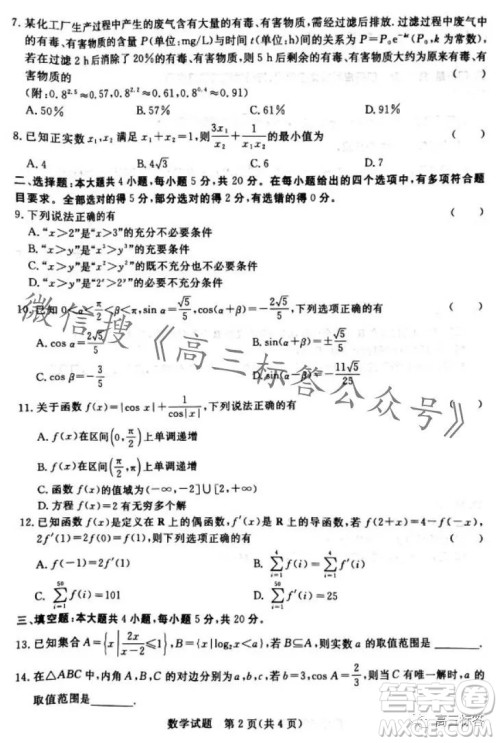 7. 某化工厂生产过程中产生的废气含有大量的有毒、有害物质,需经过滤后排放.过滤过程中废气中
的有毒、有害物质的含量 P(单位:mg/L)与时间 t(单位:h)间的关系为 P=P₀e^{-kt}(P₀,k 为常数).
若在过滤 2 h 后消除了 20%的有毒、有害物质,则 5 h 后剩余的有毒、有害物质大约为原来有毒、有
害物质的 ( )
(附:0.8^{2.5}≈0.57,0.8^{2}≈0.61,0.8^{0.4}≈0.91)
A. 50% B. 57% C. 61% D. 91%
8. 已知正实数 x₁,x₂ 满足 x₁+x₂=1,则 3x₁/x₂+1/x₁ 的最小值为 ( )
A. 4 B. 4√3 C. 6 D. 7
二、选择题:本大题共 4 小题,每小题 5 分,共 20 分。在每小题给出的四个选项中,有多项符合题
目要求。全部选对的得 5 分,部分选对的得 2 分,有选错的得 0 分。
9. 下列说法正确的有 ( )
A. “x>2”是“x>3”的充分不必要条件
B. “x>y”是“x³>y³”的充要条件
C. “x>y”是“x²>y²”的充分不必要条件
D. “x>y”是“2ˣ>2ʸ”的充要条件
10. 已知 0<α<π/2<β<π,sin α=√5/5,cos(α+β)=-2√5/5,下列选项正确的有 ( )
A. cos α=2√5/5 B. sin(α+β)=√5/5
C. cos β=-3/5 D. sin(α-β)=-11√5/25
11. 关于函数 f(x)=|cos x|+1/cos|x|,下列说法正确的有 ( )
A. f(x)在区间(0,π/2)上单调递增
B. f(x)在区间(π/2,π)上单调递增
C. 函数 f(x)的值域为(-∞,-2]∪[2,+∞)
D. 方程 f(x)=2 有无穷多个解
12. 已知函数 f(x)是定义在 R 上的偶函数,f′(x)是 f(x)的导函数,若 f(x+2)=4-f(-x),
则下列选项正确的有 ( )
A. f(1)=2f′(1) B. ∑_{i=1}^{50} f(i)=101
C. ∑_{i=1}^{50} f(i)=100 D. ∑f(i)=2∑f′(i)
三、填空题:本大题共 4 小题,每小题 5 分,共 20 分。
13. 已知集合 A={x|2x/(x-2)≤1},B={x|log₂x<a},若 B⊆A,则实数 a 的取值范围是________.
14. 在△ABC 中,内角 A,B,C 的对边分别为 a,b,c,若 a=2,cos A=2/3,则
的取值范围是________.
数学试题 第 2 页(共 4 页)
微信搜《高三标答公众号》